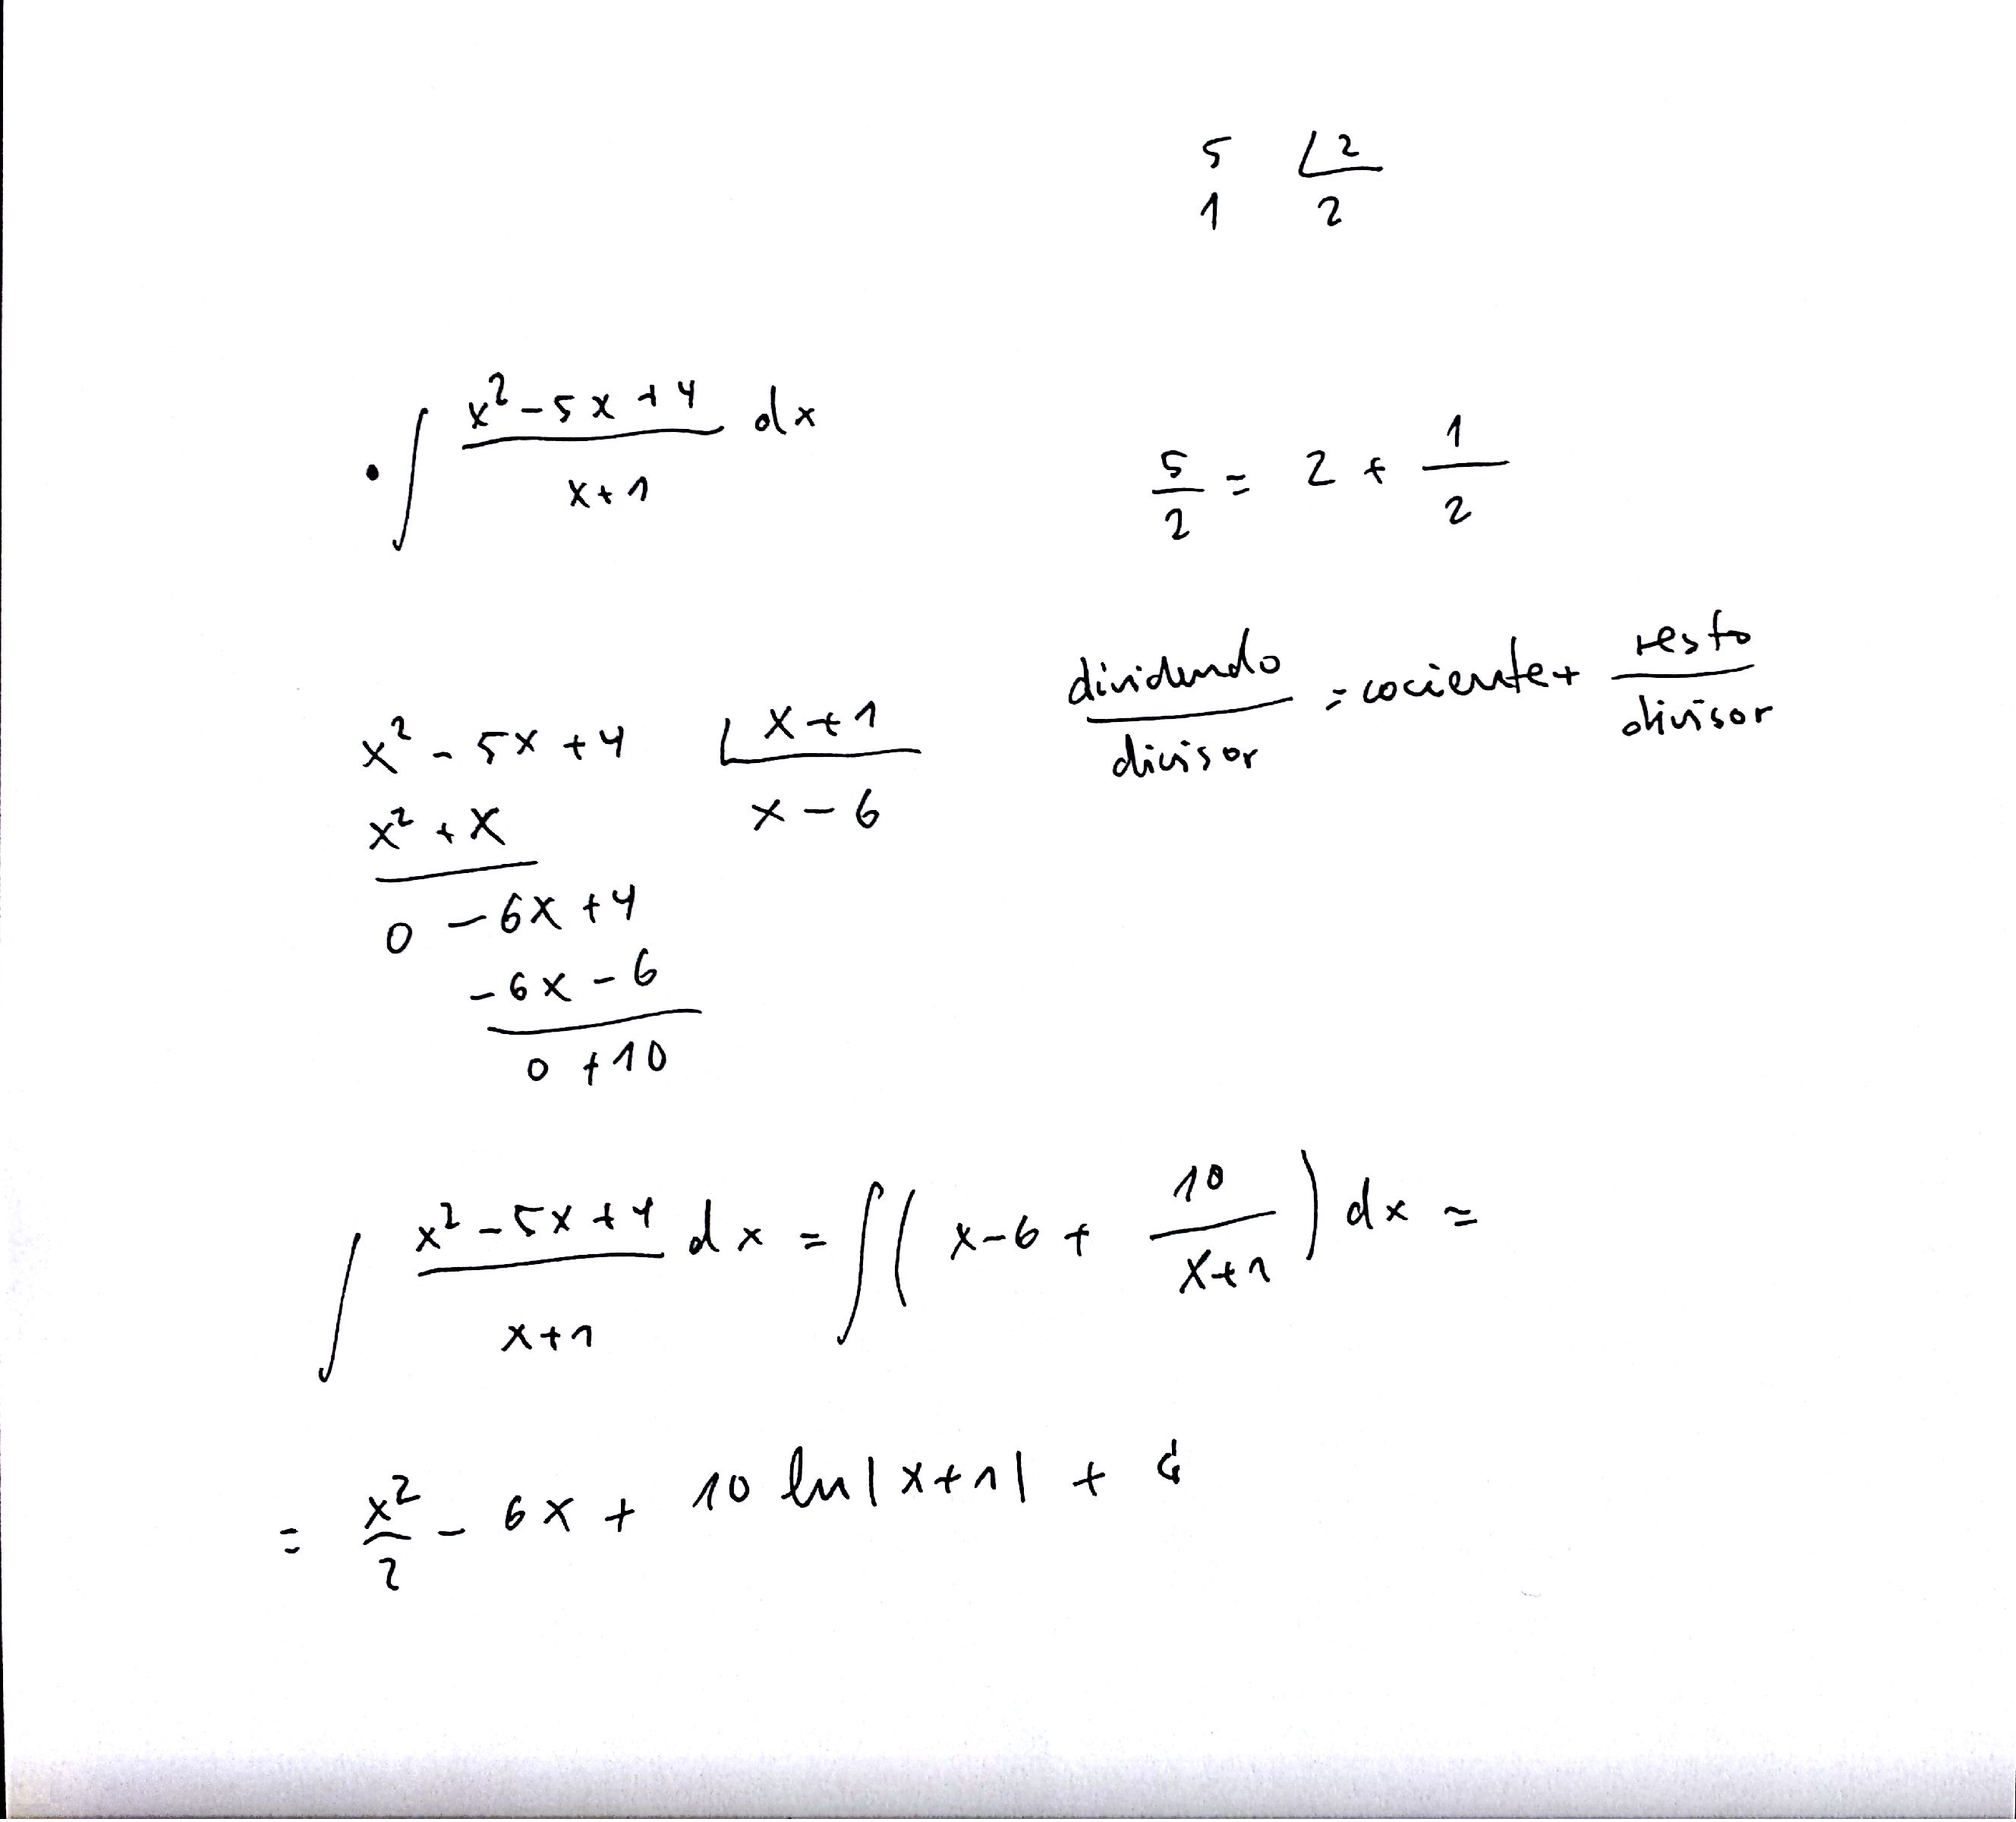 5 ∟2
1 2
• ∫ (x² - 5x + 4)/(x + 1) dx
5/2 = 2 + 1/2
dividendo/divisor = cociente + resto/divisor
x² - 5x + 4 ∟x + 1
x² + x x - 6
0 - 6x + 4
- 6x - 6
0 + 10
∫ (x² - 5x + 4)/(x + 1) dx = ∫ (x - 6 + 10/(x + 1)) dx =
= x²/2 - 6x + 10 ln|x + 1| + C